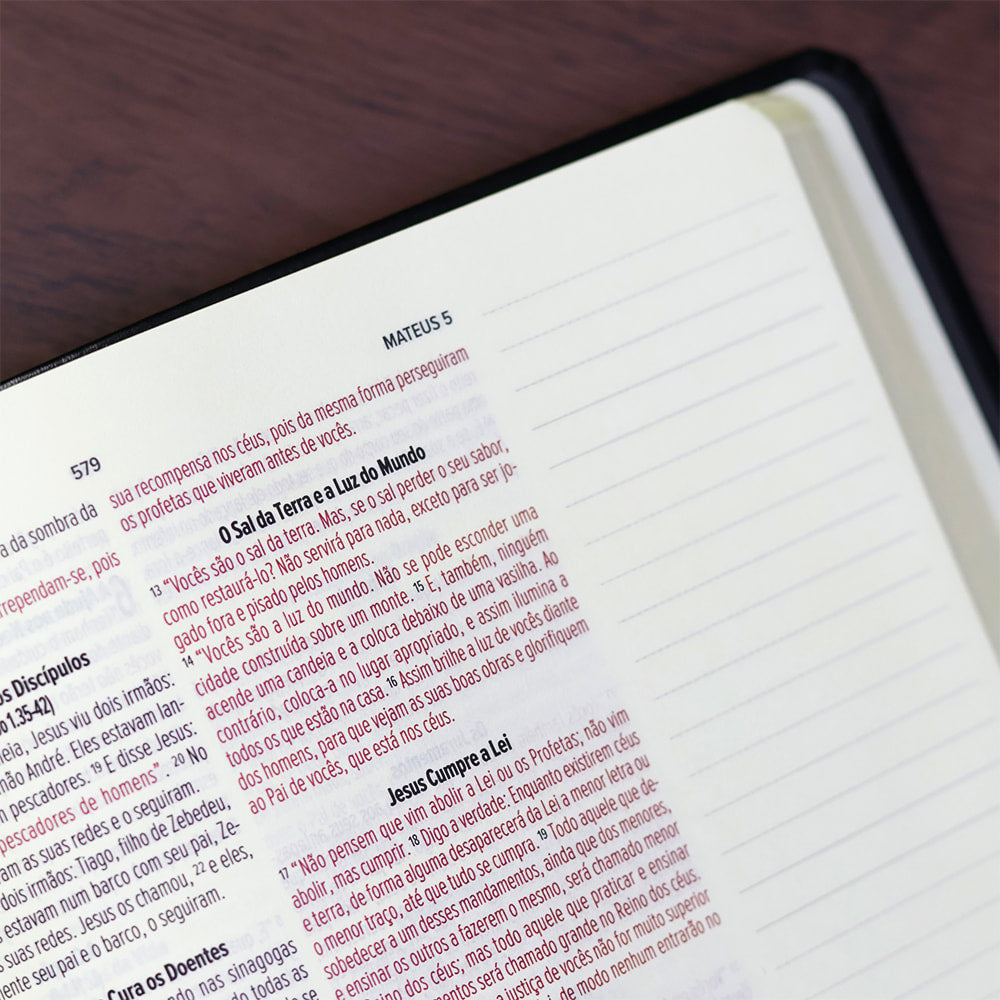 579
MATEUS 5
a da sombra da
rrependam-se, pois
os Discípulos
o 1.35-42)
eia, Jesus viu dois irmãos:
não André. Eles estavam lan-
m pescadores. 19 E disse Jesus:
pescadores de homens”. 20 No
am as suas redes e o seguiram.
dois irmãos: Tiago, filho de Zebedeu,
estavam num barco com seu pai, Ze-
suas redes. Jesus os chamou, 22 e eles,
mente seu pai e o barco, o seguiram.
Cura os Doentes
ndo nas sinagogas
do todas as
sua recompensa nos céus, pois da mesma forma perseguiram
os profetas que viveram antes de vocês.
O Sal da Terra e a Luz do Mundo
13 “Vocês são o sal da terra. Mas, se o sal perder o seu sabor,
como restaurá-lo? Não servirá para nada, exceto para ser jo-
gado fora e pisado pelos homens.
14 “Vocês são a luz do mundo. Não se pode esconder uma
cidade construída sobre um monte. 15 E, também, ninguém
acende uma candeia e a coloca debaixo de uma vasilha. Ao
contrário, coloca-a no lugar apropriado, e assim ilumina a
todos os que estão na casa. 16 Assim brilhe a luz de vocês diante
dos homens, para que vejam as suas boas obras e glorifiquem
ao Pai de vocês, que está nos céus.
Jesus Cumpre a Lei
17 “Não pensem que vim abolir a Lei ou os Profetas; não vim
abolir, mas cumprir. 18 Digo a verdade: Enquanto existirem céus
e terra, de forma alguma desaparecerá da Lei a menor letra ou
o menor traço, até que tudo se cumpra. 19 Todo aquele que de-
sobedecer a um desses mandamentos, ainda que dos menores,
e ensinar os outros a fazerem o mesmo, será chamado menor
Reino dos céus; mas todo aquele que praticar e ensinar
mentos será chamado grande no Reino dos céus.
a justiça de vocês não for muito superior
i, de modo nenhum entrarão no